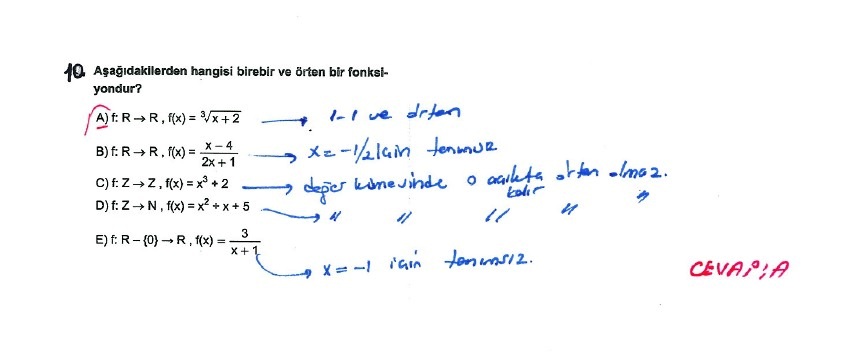 10. Aşağıdakilerden hangisi birebir ve örten bir fonksi-
yondur?
A) f: R → R , f(x) = ∛x + 2 → 1-1 ve örten
B) f: R → R , f(x) = x − 4 / 2x + 1 → x = -1/2 için tanımsız
C) f: Z → Z , f(x) = x³ + 2 → değer kümesinde 0 açıkta kalır örten olmaz.
D) f: Z → N , f(x) = x² + x + 5 → " " " " "
E) f: R − {0} → R , f(x) = 3 / x + 1 → x = -1 için tanımsız.
CEVAP: A